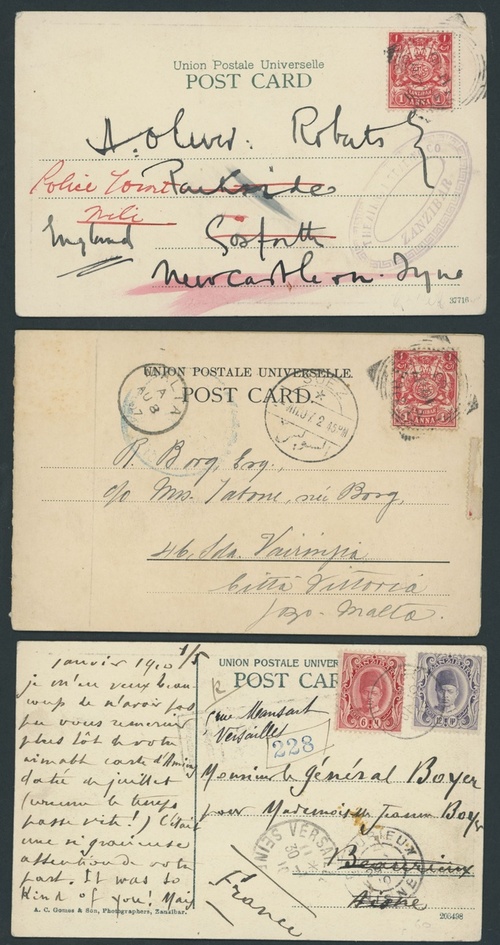 Union Postale Universelle
POST CARD
1 ANNA 1
A. Oliver Roberts
Police Court Parkside
England Gosforth
Newcastle on Tyne
ZANZIBAR
37716
UNION POSTALE UNIVERSELLE.
POST CARD.
MALTA
A
AU 8
07
SUEZ
2 45 PM
السويس
ANNA
R. Borg, Esq.,
c/o Mrs. Tabone, née Borg,
46, Sda.
Città Vittoria
Gozo - Malta.
janvier 1910 1/5
je m'en veux beau
coup de n'avoir pas
pu vous remercier
plus tôt de votre
aimable carte d'Amiens
datée de juillet
(comme le temps
passe vite!) C'était
une si gracieuse
attention de votre
part. It was so
kind of you! Mais
A. C. Gomes & Son, Photographers, Zanzibar.
UNION POSTALE UNIVER
POST CAR
5 rue Mansart
Versailles
228
Monsieur le général Boyer
pour Mademoiselle Jeanne Boyer
Beaurieux
Aisne
France
VERSA
206498